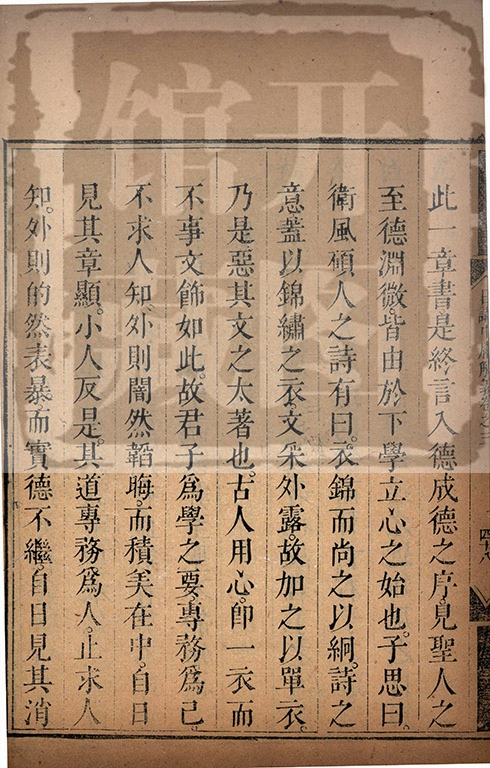 此一章書是終言入德成德之序見聖人之
至德淵微皆由於下學立心之始也子思曰
衛風碩人之詩有曰衣錦而尚之以絅詩之
意蓋以錦繡之衣文采外露故加之以單衣
乃是惡其文之太著也古人用心即一衣而
不事文飾如此故君子為學之要專務為己
不求人知外則闇然韜晦而積美在中自日
見其章顯小人反是其道專務為人止求人
知外則的然表暴而實德不繼自日見其消
四十八